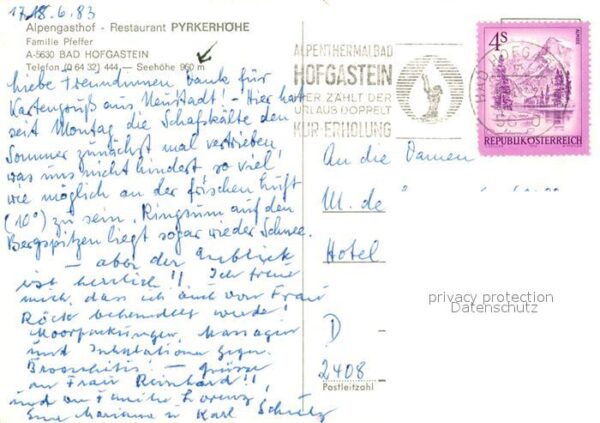 17.18.6.83
Alpengasthof - Restaurant PYRKERHÖHE
Familie Pfeffer
A-5630 BAD HOFGASTEIN
Telefon (0 64 32) 444 — Seehöhe 960 m
liebe Freundinnen Dank für
Kartengruß aus Neustadt! - Hier hat
seit Montag die Schafskälte den
Sommer zunächst mal vertrieben,
was uns nicht hindert so viel
wie möglich an der frischen Luft
(10°) zu sein. Ringsum auf den
Bergspitzen liegt sogar wieder Schnee.
- aber der Anblick
ist herrlich!! Ich freue
mich, dass ich auch von Frau
Röck behandelt werde!
Moorpackungen, Massagen
und Inhalationen gegen
Bronchitis! - Grüsse
an Frau Reinhard!!
und an Familie Lorenz!
Eure Marianne u Karl Schulz
ALPENTHERMALBAD
HOFGASTEIN
HIER ZÄHLT DER
URLAUB DOPPELT
KUR-ERHOLUNG
BAD HOFGA
4S
ALMSEE
REPUBLIK ÖSTERREICH
An die Damen
M. de
Hotel
D
2408
Postleitzahl
privacy protection
Datenschutz